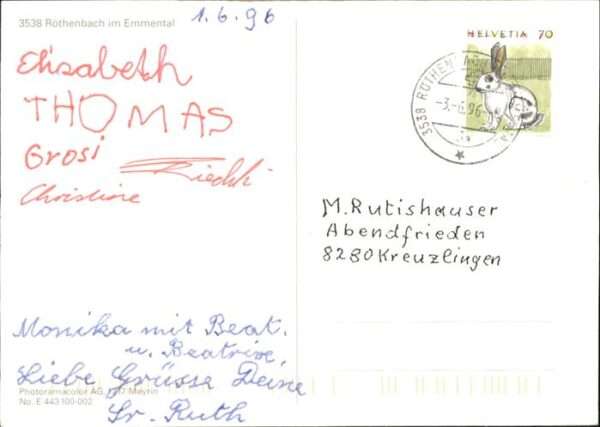 3538 Röthenbach im Emmental
1.6.96
Elisabeth
THOMAS
Grosi
Christine
Monika mit Beat.
u. Beatrice,
Liebe Grüsse Deine
Sr. Ruth
Photoramacolor AG,
Meyrin
No. E 443 100-002
HELVETIA 70
3538 RÖTHENBACH
-3.-6.96
M. Rutishauser
Abendfrieden
8280 Kreuzlingen